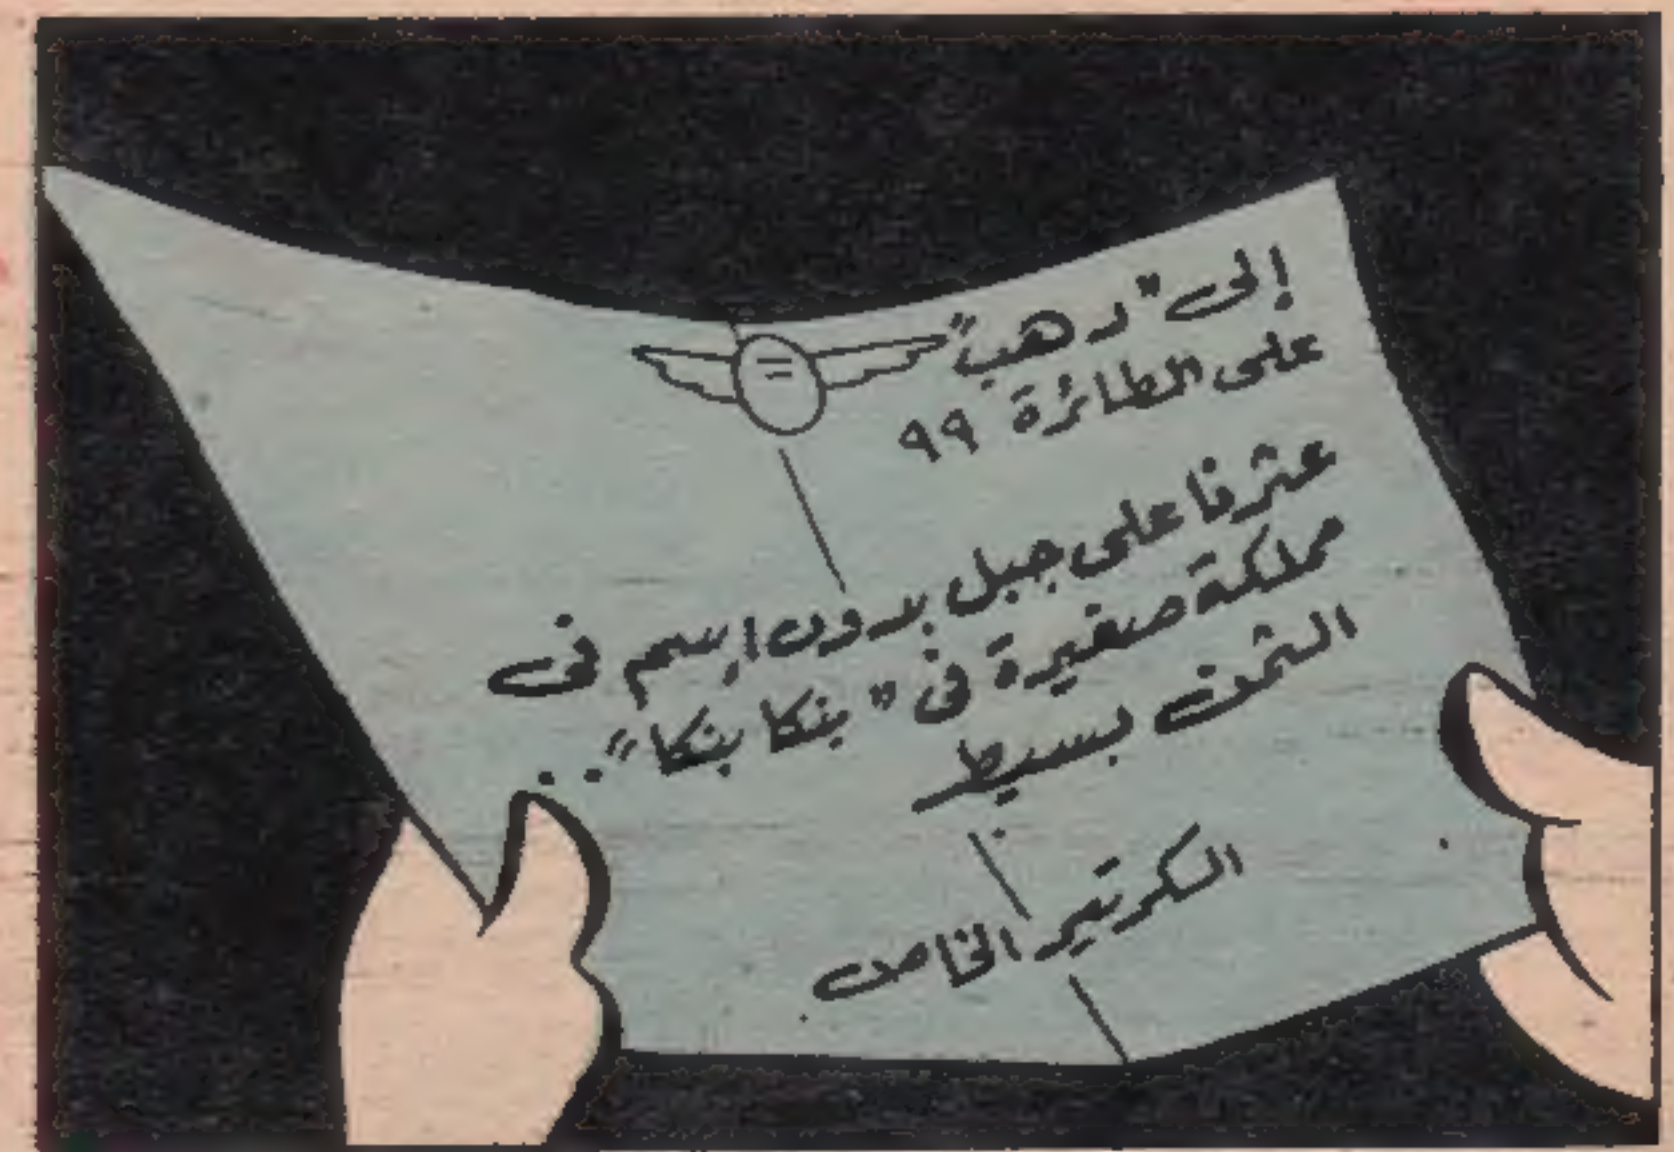 إلى "دهب"
على الطائرة ٩٩
عثرنا على جبل بدون إسم فى
مملكة صغيرة فى "بنكا بنكا" ..
الثمن بسيط
السكرتير الخاص